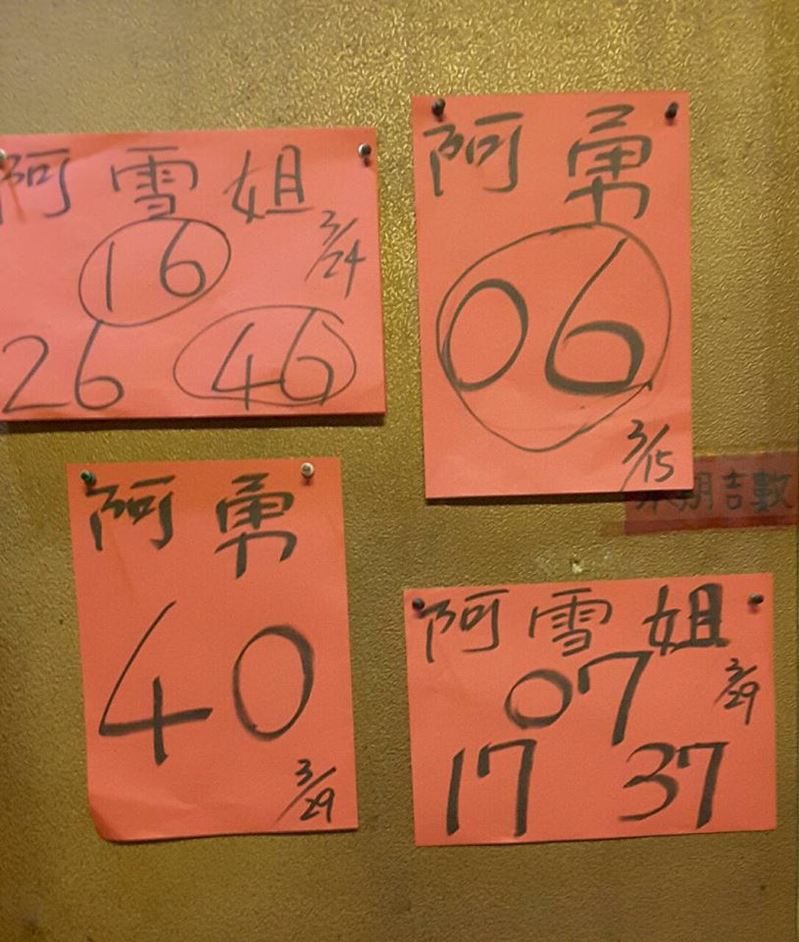 阿雪姐
16
3/24
26 46
阿勇
06
3/15
本期吉數
阿勇
40
3/29
阿雪姐
07
3/29
17 37